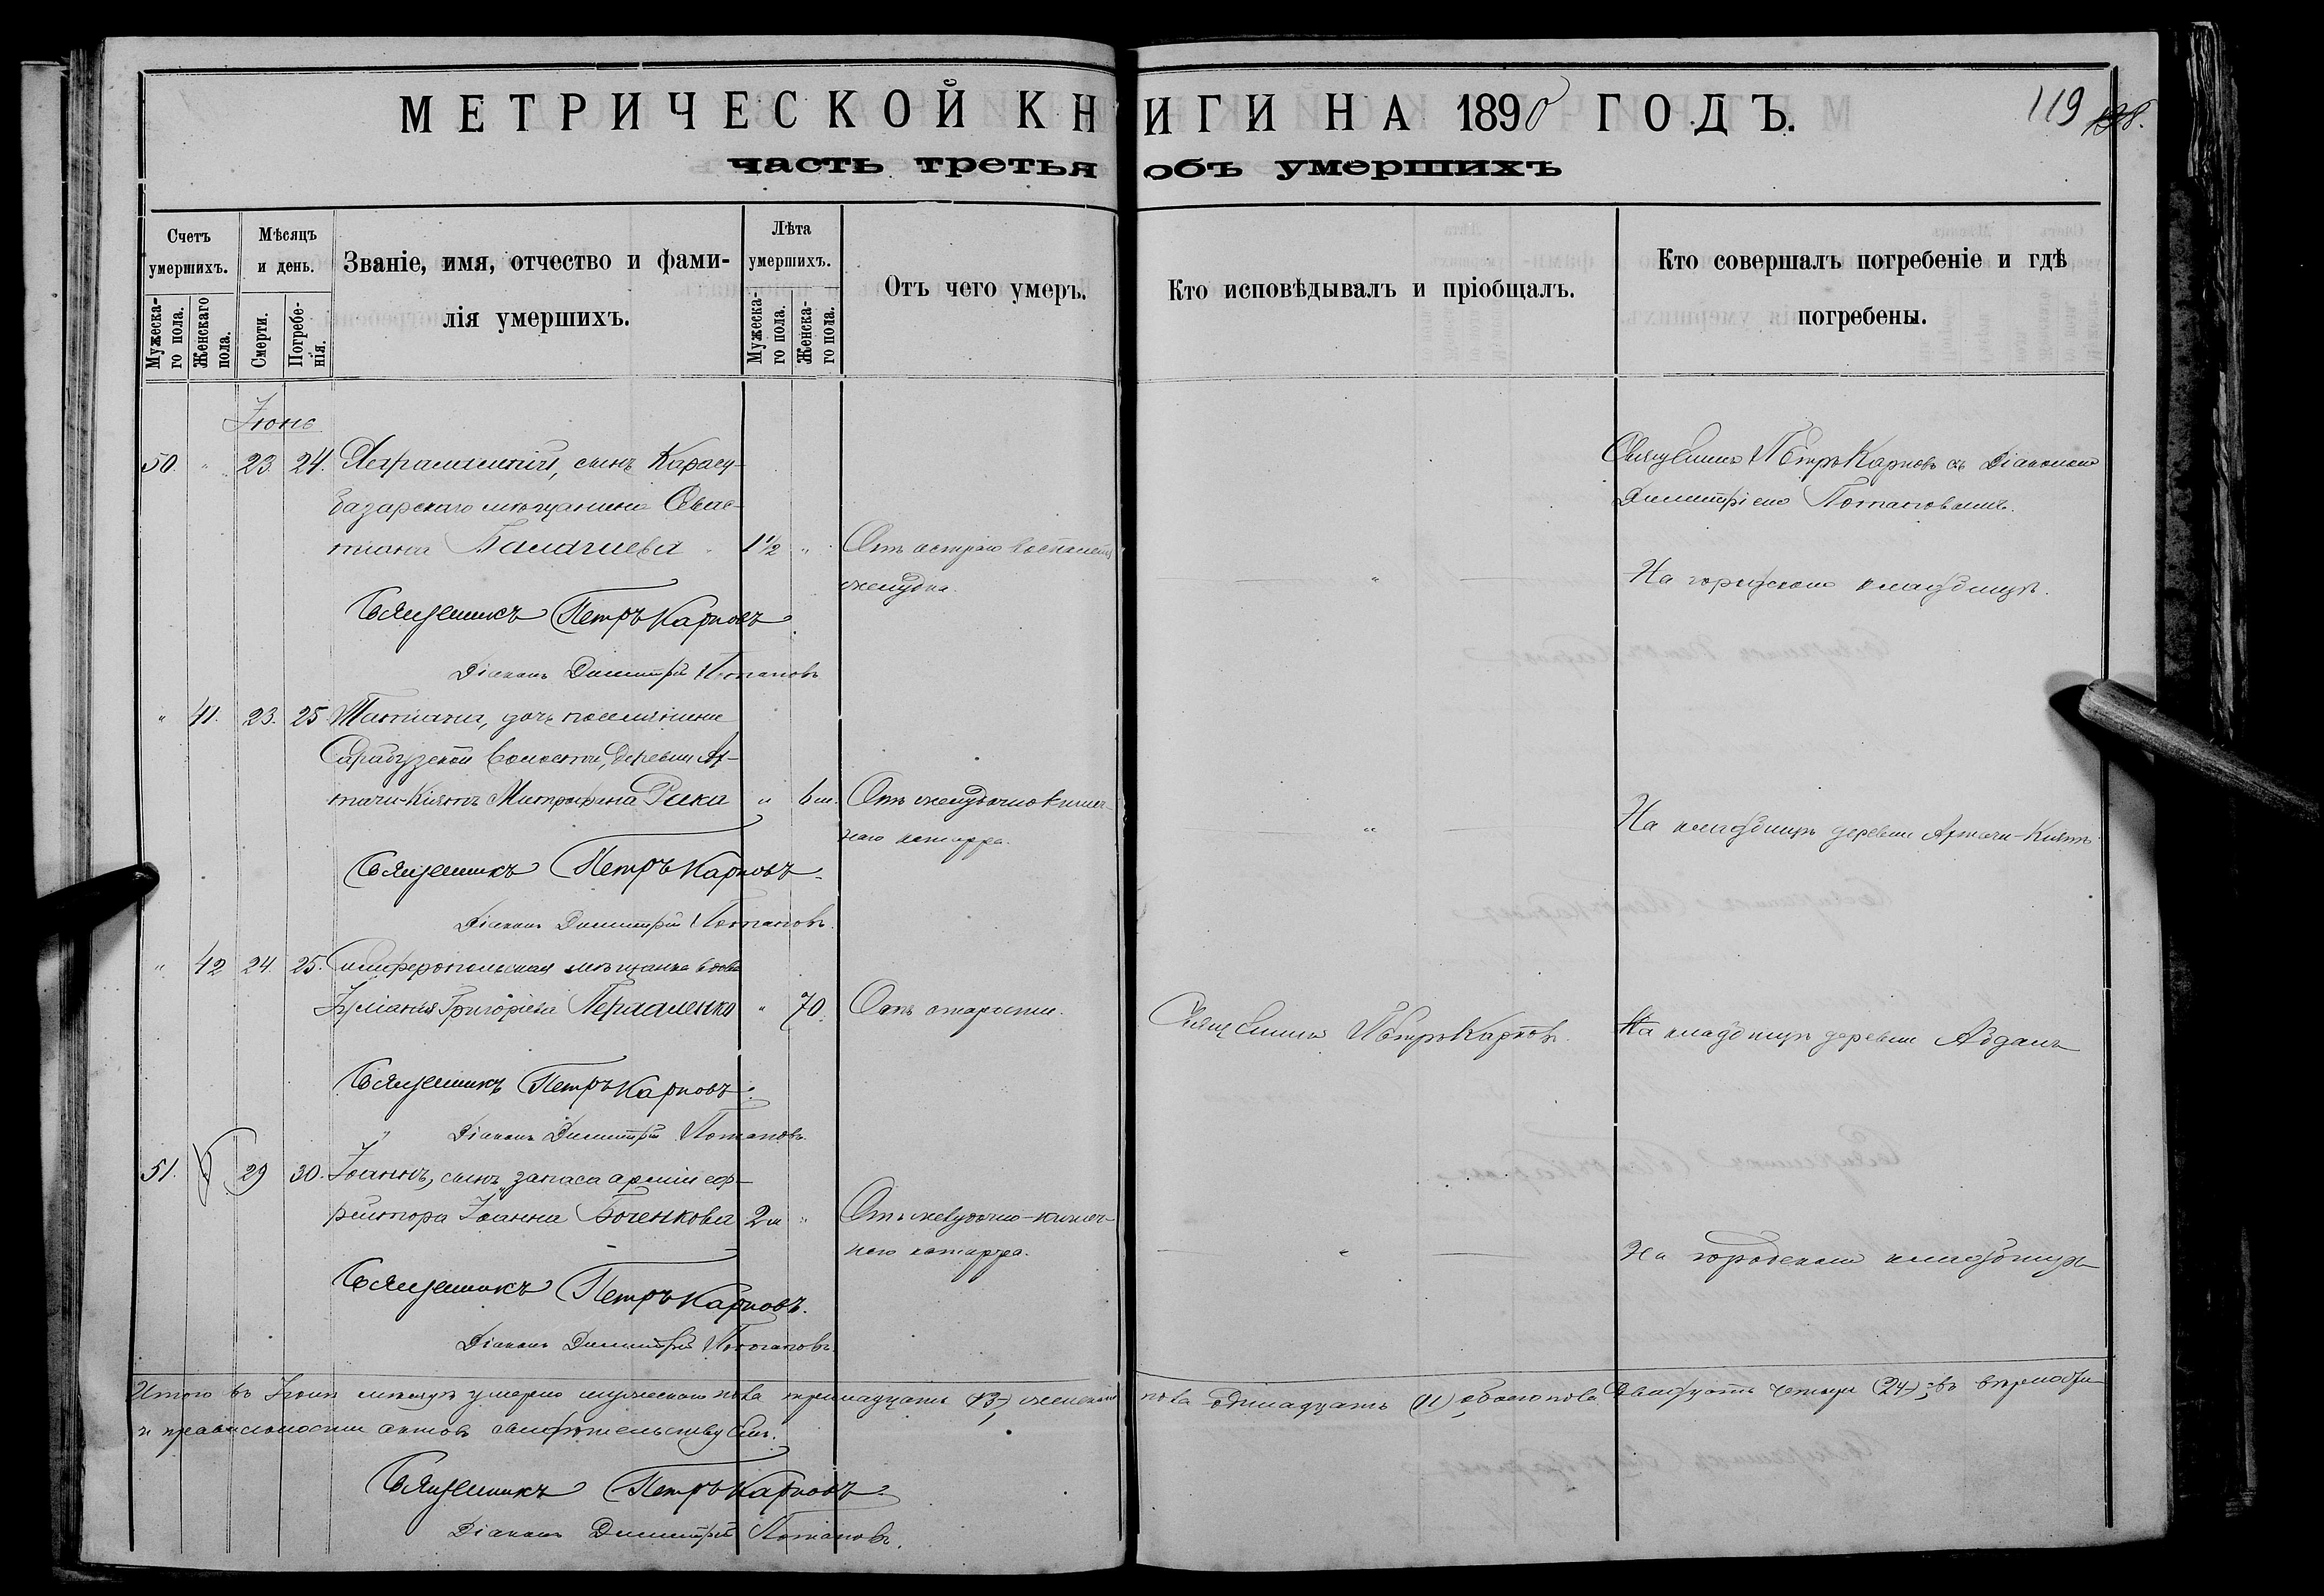 МЕТРИЧЕСКОЙ КНИГИ НА 1890 ГОДЪ.
119
часть третья объ умершихъ
Счетъ умершихъ.
Мужеска-го пола.
Женскаго пола.
Мѣсяцъ и день.
Смерти.
Погребе-нія.
Званіе, имя, отчество и фами-
лія умершихъ.
Лѣта умершихъ.
Мужеска-го пола.
Женска-го пола.
Отъ чего умеръ.
Кто исповѣдывалъ и пріобщалъ.
Кто совершалъ погребеніе и гдѣ
погребены.
Іюнь
50. " 23. 24. сынъ Карасу-
базарскаго мѣщанина Севас-
тіана 1½ " Отъ остраго воспаленія
желудка.
Священникъ Петръ Карповъ съ Діакономъ
Димитріемъ Потаповымъ.
" На городскомъ кладбищѣ.
Священникъ Петръ Карповъ
Діаконъ Димитрій Потаповъ
" 41. 23. 25. Татіана, дочь поселянина
Сарабузской волости, деревни Ар-
тачи-Кіятъ Митрофана " 6 м. Отъ желудочно кишеч-
наго катарра.
" На кладбищѣ деревни Артачи-Кіятъ
Священникъ Петръ Карповъ.
Діаконъ Димитрій Потаповъ.
" 42 24. 25. Симферопольская мѣщанка вдова
Іуліанія Григорьева " 70. Отъ старости.
Священникъ Петръ Карповъ. На кладбищѣ деревни Абдалъ
Священникъ Петръ Карповъ.
Діаконъ Димитрій Потаповъ.
51. " 29 30. Іоаннъ, сынъ запаса арміи еф-
рейтора Іоанна Боченкова 2 м " Отъ желудочно-кишеч-
наго катарра.
" На городскомъ кладбищѣ
Священникъ Петръ Карповъ.
Діаконъ Димитрій Потаповъ.
Итого въ Іюнѣ мѣсяцѣ умерло мужескаго пола тринадцать (13), женскаго пола одинадцать (11) обоего пола двадцать четыре (24), въ вѣрности
и правильности актовъ свидѣтельствуемъ.
Священникъ Петръ Карповъ.
Діаконъ Димитрій Потаповъ.